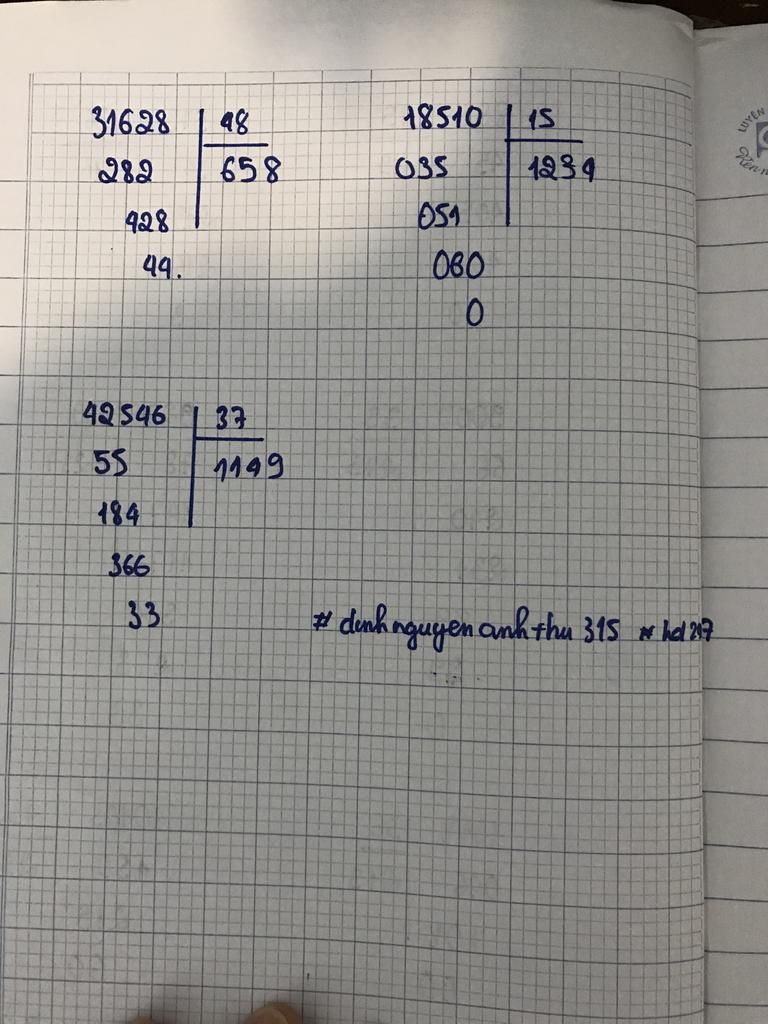 31628 48
282 658
428
44.
18510 15
035 1234
051
060
0
42546 37
55 1149
184
366
33
# dinhnguyenanhthu 315
LUYỆN